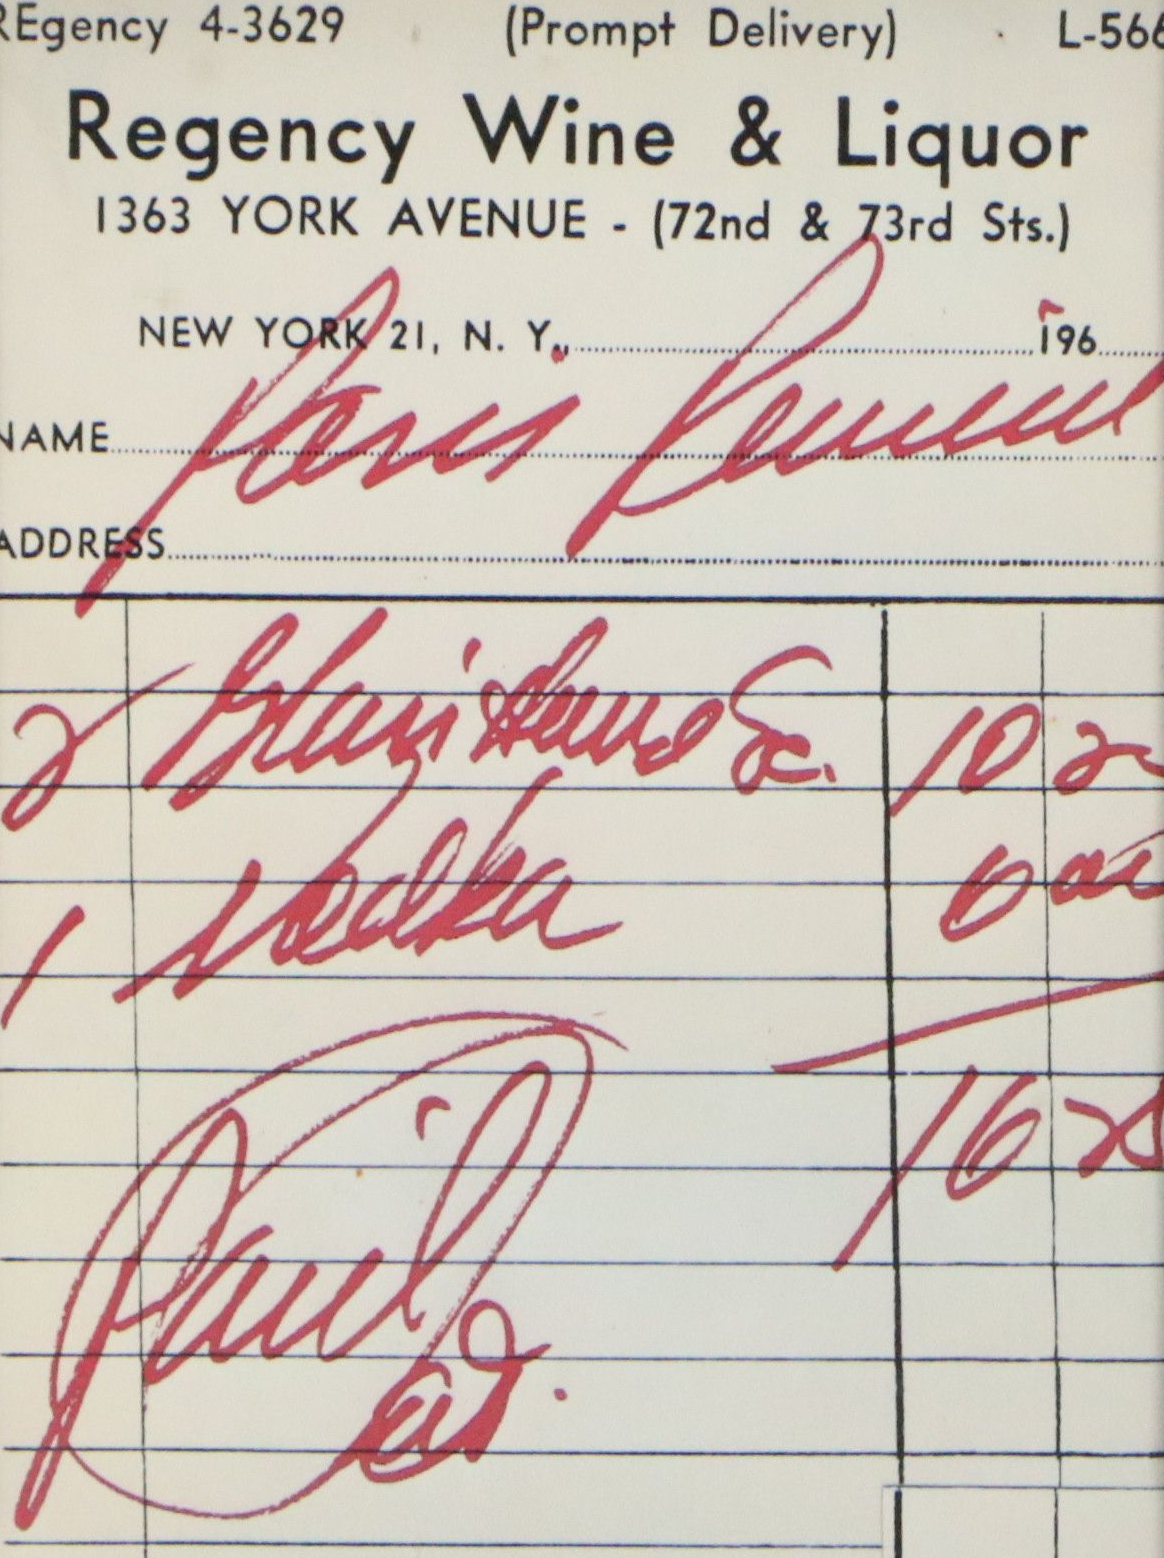 REgency 4-3629 (Prompt Delivery) L-566
Regency Wine & Liquor
1363 YORK AVENUE - (72nd & 73rd Sts.)
NEW YORK 21, N. Y., 196
NAME Paris
ADDRESS
2 10 20
1 Vodka 6 05
16 25
Paid